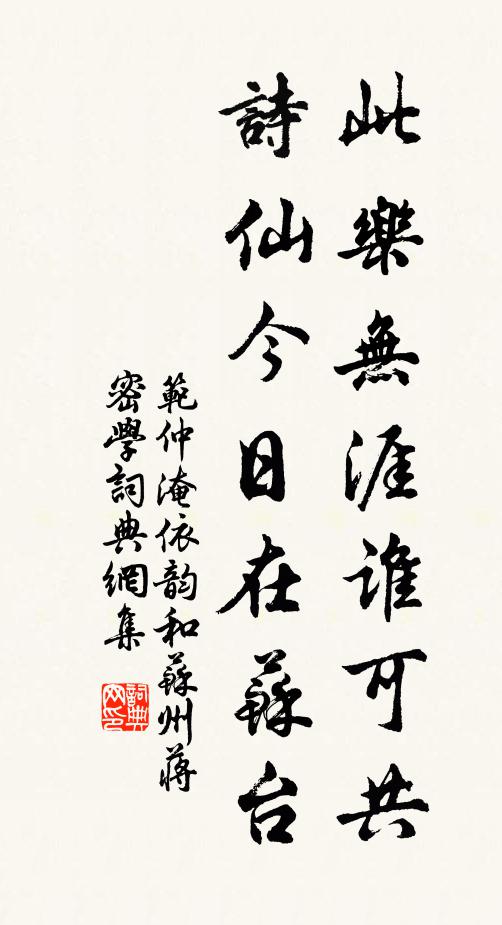 此樂無涯誰可共
詩仙今日在蘇台
範仲淹依韵和蘇州蔣
密學詞典網集
詞典网印